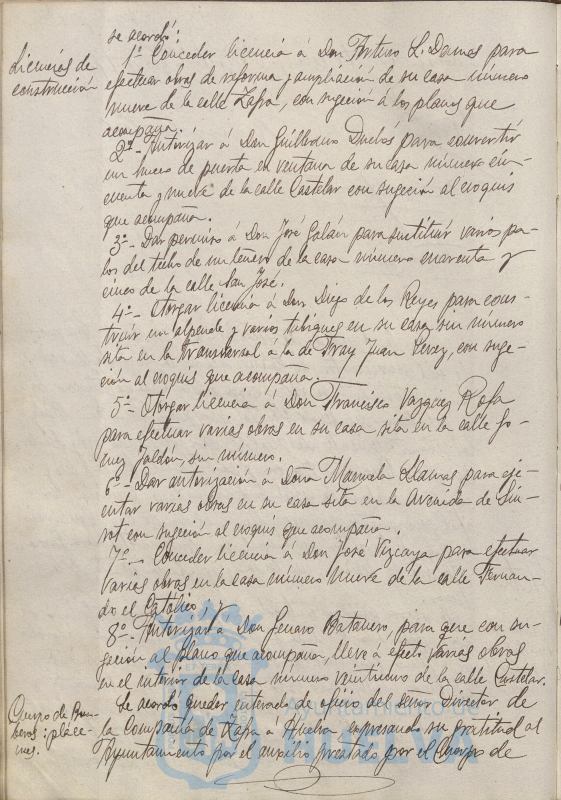 se acordó:
Licencias de
construcción
1º Conceder licencia á Don Arturo L. Damas para
efectuar obras de reforma y ampliación de su casa número
nueve de la calle Zafra, con sugeción á los planos que
acompaña.
2º - Autorizar á Don Guillermo Duclós para convertir
un hueco de puerta en ventana de su casa número cin-
cuenta y nueve de la calle Castelar con sugeción al croquis
que acompaña.
3º - Dar permiso á Don José Galán para sustituir varios pa-
los del techo de un tenero de la casa número cuarenta y
cinco de la calle San José.
4º - Otorgar licencia á Don Diego de los Reyes para cons-
truir un alpende y varios tabiques en su casa, sin número
sita en la transversal á la de Fray Juan Perez, con suge-
ción al croquis que acompaña.
5º - Otorgar licencia á Don Francisco Vazquez Rofa
para efectuar varias obras en su casa sita en la calle Go-
mez Jaldón, sin número.
6º - Dar autorización á Doña Manuela Llamas para eje-
cutar varias obras en su casa sita en la Avenida de
con sugeción al croquis que acompaña.
7º - Conceder licencia á Don José Vizcaya para efectuar
varias obras en la casa número nueve de la calle Fernan-
do el Católico, y
8º - Autorizar á Don Genaro Batanero, para que con su-
geción al plano que acompaña, lleve á efecto varias obras
en el interior de la casa número veintiuno de la calle Castelar.
Cuerpo de Bom-
beros: pláce-
mes.
Se acordó quedar enterado de oficio del señor Director de
la Compañía de Zafra á Huelva expresando su gratitud al
Ayuntamiento por el auxilio prestado por el Cuerpo de
Ayuntamiento de
HUELVA